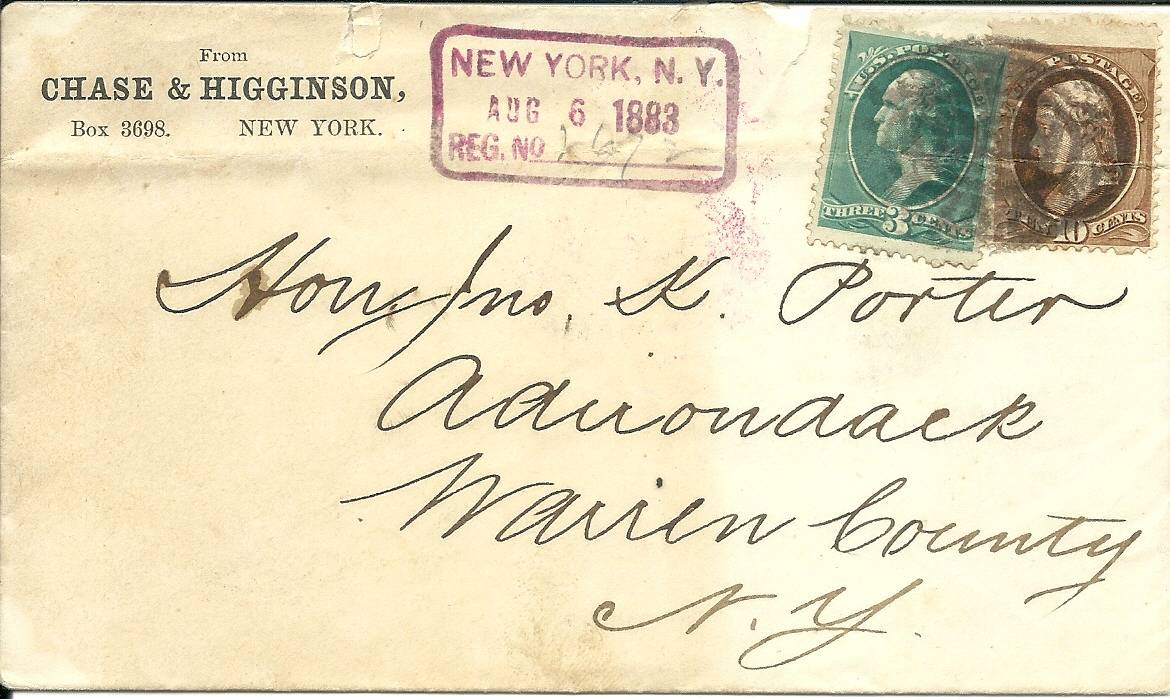 From
CHASE & HIGGINSON,
Box 3698. NEW YORK.
NEW YORK, N. Y.
AUG 6 1883
REG. NO
U.S. POSTAGE
THREE 3 CENTS
U.S. POSTAGE
10 CENTS
Hon. Jno. K. Porter
Adirondack
Warren County
N. Y.